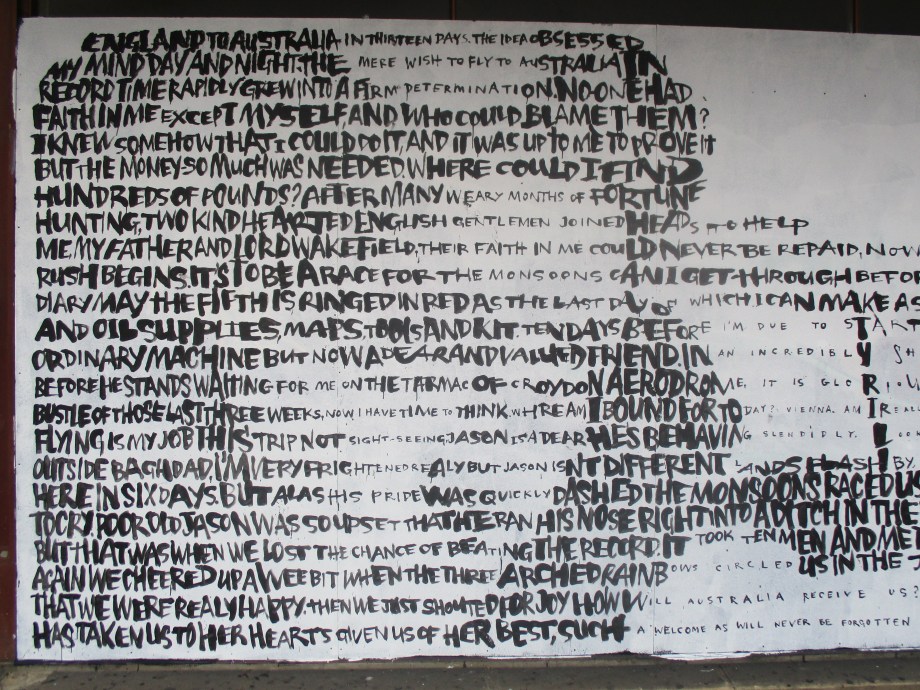 ENGLAND TO AUSTRALIA IN THIRTEEN DAYS. THE IDEA OBSESSED
MY MIND DAY AND NIGHT. THE MERE WISH TO FLY TO AUSTRALIA IN
RECORD TIME RAPIDLY GREW INTO A FIRM DETERMINATION. NO ONE HAD
FAITH IN ME EXCEPT MYSELF, AND, WHO COULD BLAME THEM?
I KNEW SOMEHOW THAT I COULD DO IT, AND IT WAS UP TO ME TO PROVE IT
BUT THE MONEY SO MUCH WAS NEEDED. WHERE COULD I FIND
HUNDREDS OF POUNDS? AFTER MANY WEARY MONTHS OF FORTUNE
HUNTING, TWO KIND HEARTED ENGLISH GENTLEMEN JOINED HEADS TO HELP
ME, MY FATHER AND LORD WAKEFIELD, THEIR FAITH IN ME COULD NEVER BE REPAID, NOW
RUSH BEGINS. IT'S TO BE A RACE FOR THE MONSOONS CAN I GET THROUGH BEFO
DIARY MAY THE FIFTH IS RINGED IN RED AS THE LAST DAY WHICH I CAN MAKE A
AND OIL SUPPLIES, MAPS, TOOLS AND KIT. TEN DAYS BEFORE I'M DUE TO START
ORDINARY MACHINE BUT NOW A DEAR AND VALUED FRIEND. IN AN INCREDIBLY SH
BEFORE HE STANDS WAITING FOR ME ON THE TARMAC OF CROYDON AERODROME, IT IS GLORIOU
BUSTLE OF THOSE LAST THREE WEEKS, NOW I HAVE TIME TO THINK. WHERE AM I BOUND FOR TODAY? VIENNA. AM I REAL
FLYING IS MY JOB THIS TRIP NOT SIGHT-SEEING JASON IS A DEAR HE'S BEHAVING SLENDIDLY. LOO
OUTSIDE BAGHDAD, I'M VERY FRIGHTENED REALY BUT JASON ISN'T DIFFERENT LANDS FLASH BY
HERE IN SIX DAYS. BUT ALAS HIS PRIDE WAS QUICKLY DASHED THE MONSOONS RACED US
TO CRY. POOR OLD JASON WAS SO UPSET THAT HE RAN HIS NOSE RIGHT INTO A DITCH IN THE
BUT THAT WAS WHEN WE LOST THE CHANCE OF BEATING THE RECORD. IT TOOK TEN MEN AND MET
AGAIN WE CHEERED UP A WEE BIT WHEN THE THREE ARCHED RAINBOWS CIRCLED US IN THE
THAT WE WERE REALY HAPPY. THEN WE JUST SHOUTED FOR JOY HOW WILL AUSTRALIA RECEIVE US?
HAS TAKEN US TO HER HEARTS GIVEN US OF HER BEST, SUCH A WELCOME AS WILL NEVER BE FORGOTTEN